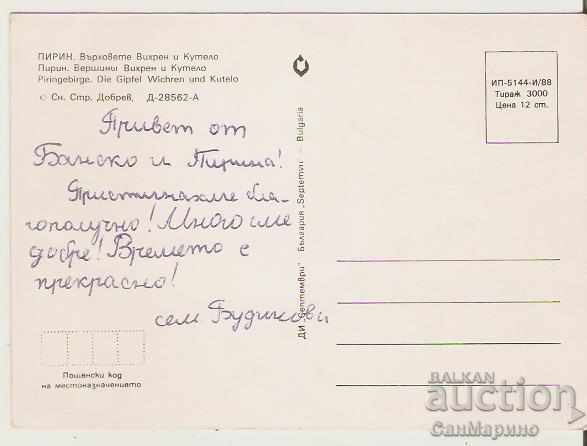 ПИРИН. Върховете Вихрен и Кутело
Пирин. Вершины Вихрен и Кутело
Piringebirge. Die Gipfel Wichren und Kutelo
© Сн. Стр. Добрев, Д-28562-А
Привет от
Банско и Пирина!
Пристигнахме бла-
гополучно! Много сме
добре! Времето е
прекрасно!
сем. Будинови
Пощенски код
на местоназначението
ДИ „Септември" България „Septemvri" Bulgaria
ИП-5144-И/88
Тираж 3000
Цена 12 ст.
BALKAN
auction
СанМарино